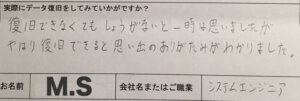 実際にデータ復旧をしてみていかがですか?
復旧できなくてもしょうがないと一時は思いましたが
やはり復旧できると思い出のありがたみがわかりました。
お名前 M.S 会社名またはご職業 システムエンジニア